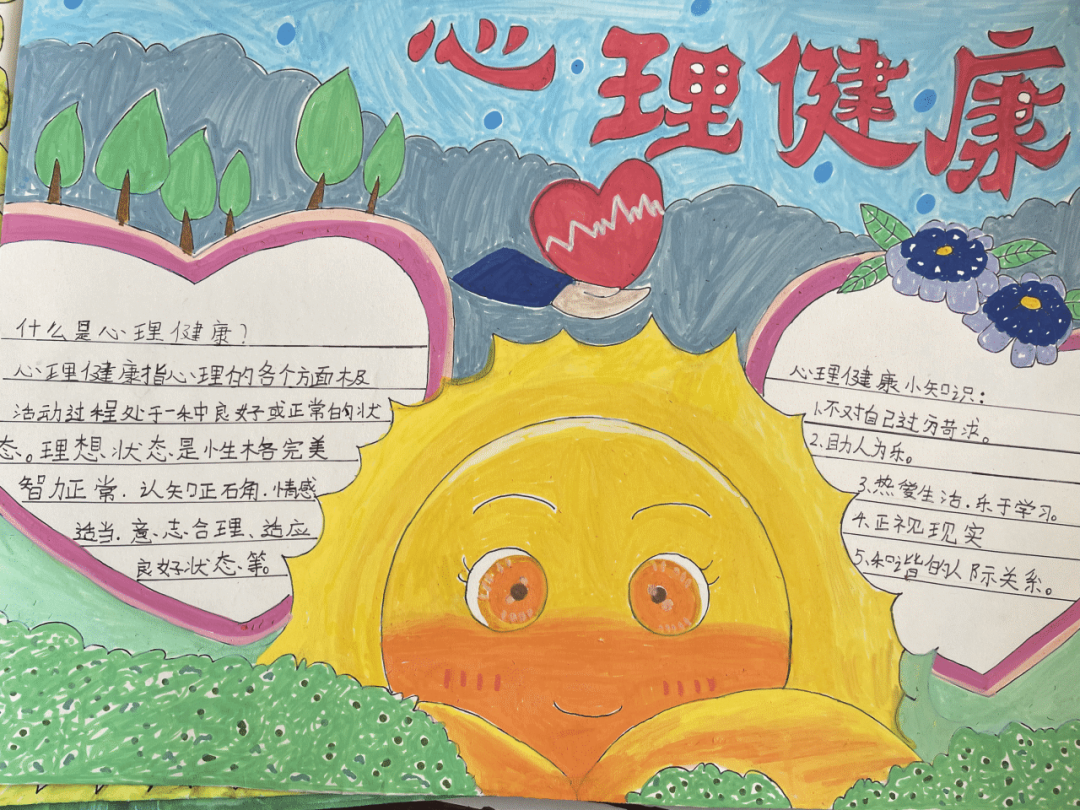 心理健康
什么是心理健康？
心理健康指心理的各个方面极
活动过程处于一种良好或正常的状
态。理想状态是性格完美
智力正常.认知正确.情感
适当.意志合理、适应
良好状态等。
心理健康小知识：
1、不对自己过分苛求。
2.助人为乐。
3.热爱生活.乐于学习。
4.正视现实
5.和谐的人际关系。